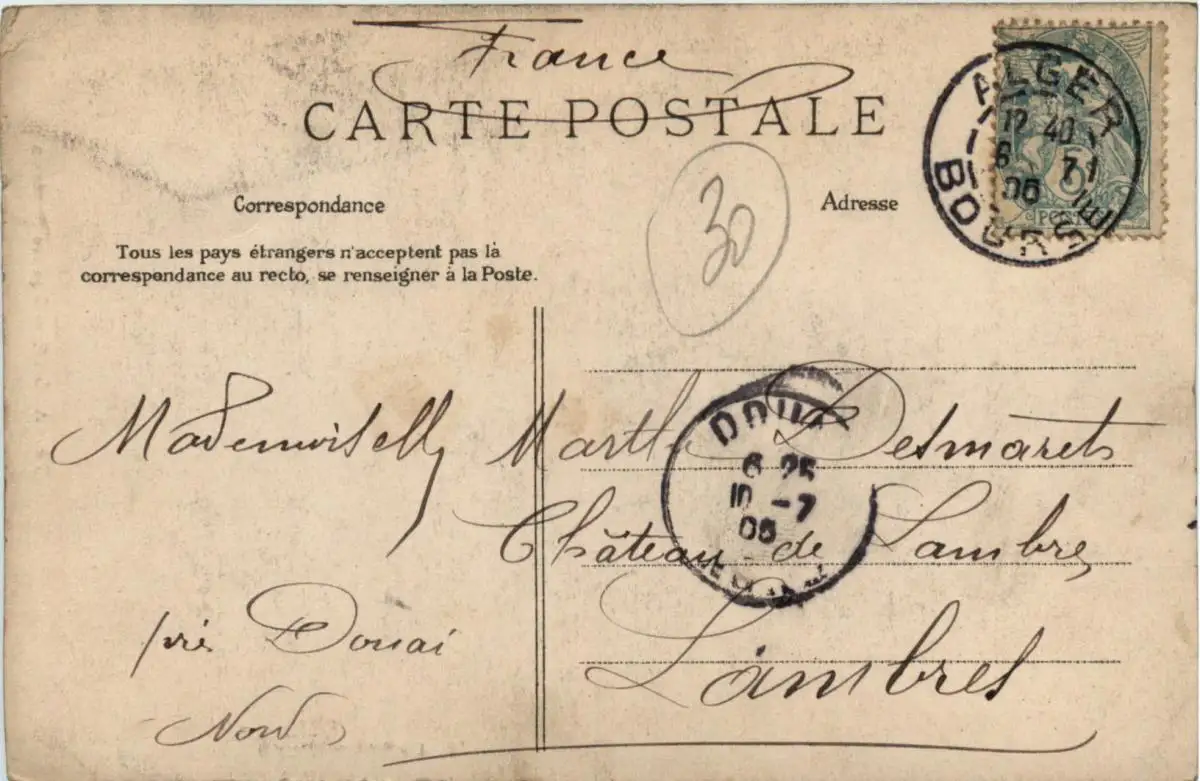 France
CARTE POSTALE
ALGER
12 40
6 7
06
BOURSE
5
POSTES
30
Correspondance
Adresse
Tous les pays étrangers n'acceptent pas la
correspondance au recto, se renseigner à la Poste.
Mademoiselle Marthe Desmarets
DOUAI
6 25
10 -7
06
Château de Lambres
près Douai
Lambres
Nord